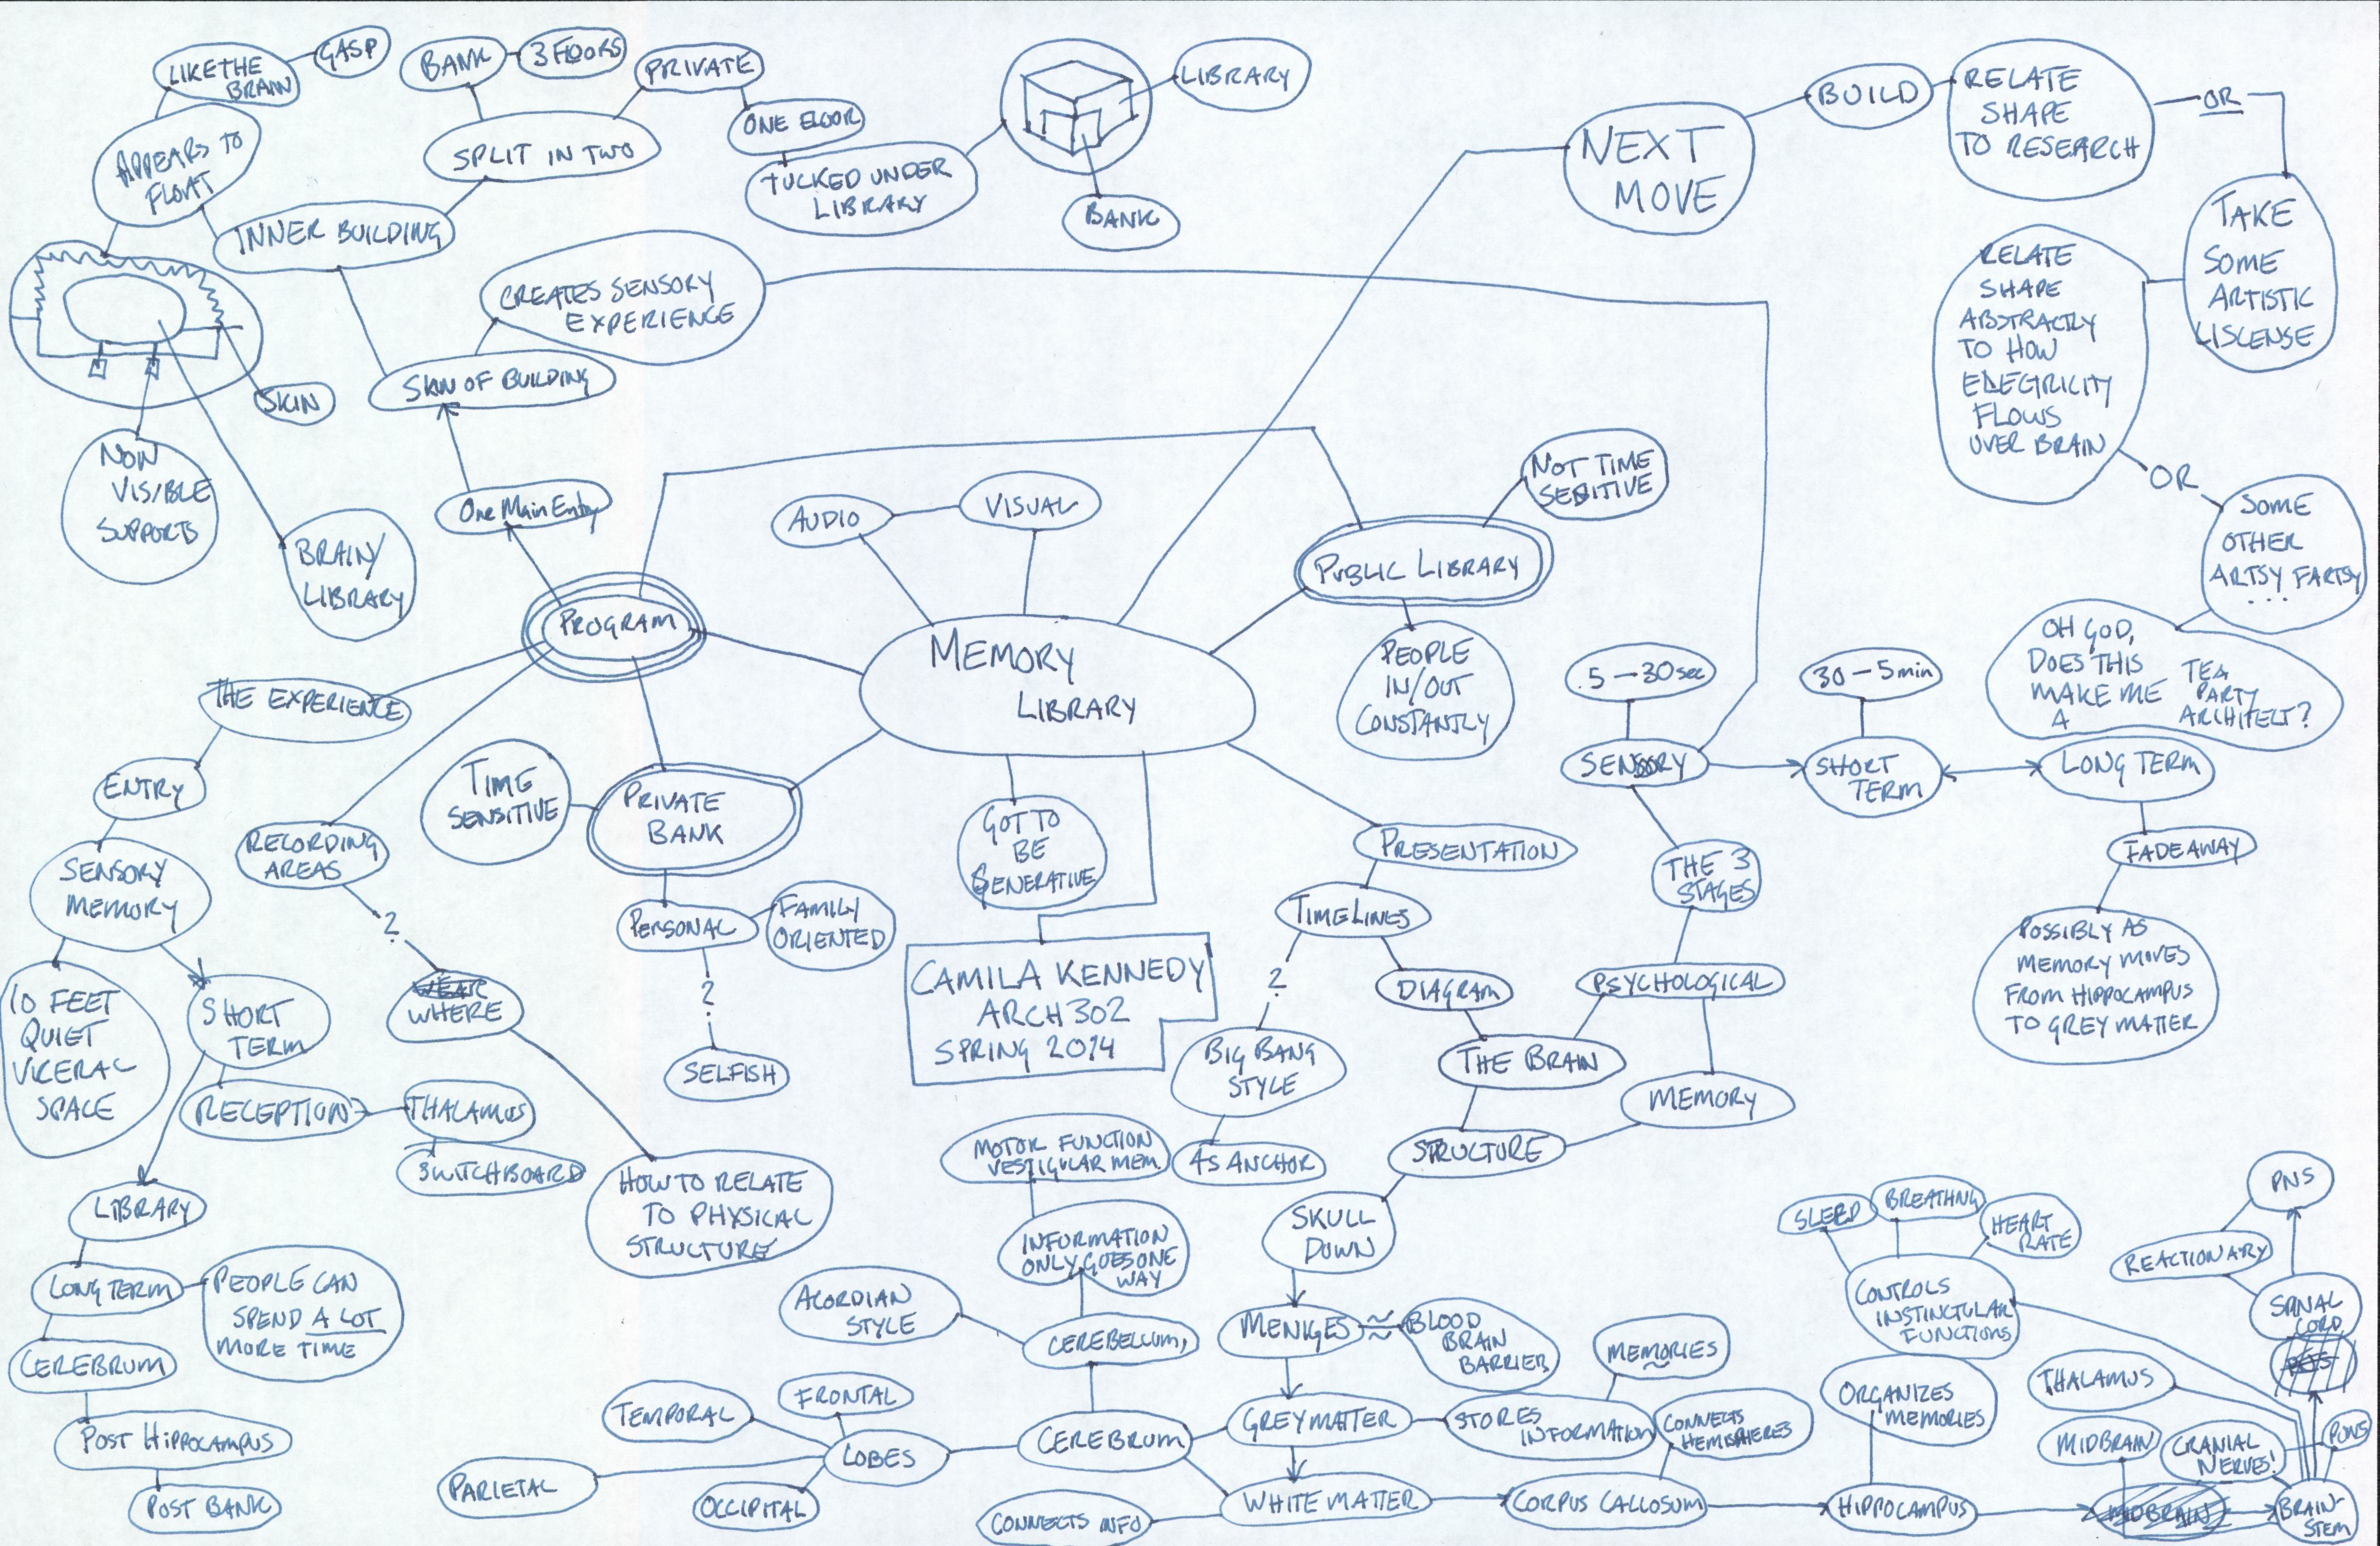 LIKE THE
BRAIN
GASP
BANK
3 FLOORS
PRIVATE
ONE FLOOR
APPEARS TO
FLOAT
SPLIT IN TWO
TUCKED UNDER
LIBRARY
LIBRARY
BANK
INNER BUILDING
NEXT
MOVE
BUILD
RELATE
SHAPE
TO RESEARCH
OR
TAKE
SOME
ARTISTIC
LISCENSE
RELATE
SHAPE
ABSTRACTLY
TO HOW
ELECTRICITY
FLOWS
OVER BRAIN
OR
SOME
OTHER
ARTSY FARTSY
...
OH GOD,
DOES THIS
MAKE ME
A
TEA
PARTY
ARCHITECT?
CREATES SENSORY
EXPERIENCE
SKIN OF BUILDING
SKIN
NON
VISIBLE
SUPPORTS
BRAINY
LIBRARY
One Main Entry
AUDIO
VISUAL
NOT TIME
SENSITIVE
PUBLIC LIBRARY
PEOPLE
IN/OUT
CONSTANTLY
PROGRAM
MEMORY
LIBRARY
THE EXPERIENCE
ENTRY
TIME
SENSITIVE
PRIVATE
BANK
GOT TO
BE
GENERATIVE
.5 - 30 sec
30 - 5 min
SENSORY
SHORT
TERM
LONG TERM
FADE AWAY
POSSIBLY AS
MEMORY MOVES
FROM HIPPOCAMPUS
TO GREY MATTER
THE 3
STAGES
PRESENTATION
TIMELINES
?
DIAGRAM
PSYCHOLOGICAL
BIG BANG
STYLE
AS ANCHOR
THE BRAIN
MEMORY
STRUCTURE
RECORDING
AREAS
?
WEAR
WHERE
SENSORY
MEMORY
10 FEET
QUIET
VICERAL
SPACE
SHORT
TERM
RECEPTION
THALAMUS
SWITCHBOARD
PERSONAL
FAMILY
ORIENTED
?
SELFISH
CAMILA KENNEDY
ARCH 302
SPRING 2014
HOW TO RELATE
TO PHYSICAL
STRUCTURE
LIBRARY
LONG TERM
PEOPLE CAN
SPEND A LOT
MORE TIME
CEREBRUM
POST HIPPOCAMPUS
POST BANK
MOTOR FUNCTION
VESTIGULAR MEM.
INFORMATION
ONLY GOES ONE
WAY
ACORDIAN
STYLE
CEREBELLUM
SKULL
DOWN
MENIGES
BLOOD
BRAIN
BARRIER
GREY MATTER
STORES
INFORMATION
MEMORIES
CONNECTS
HEMISPHERES
TEMPORAL
FRONTAL
LOBES
PARIETAL
OCCIPITAL
CEREBRUM
WHITE MATTER
CONNECTS INFO
CORPUS CALLOSUM
HIPPOCAMPUS
ORGANIZES
MEMORIES
SLEEP
BREATHNG
HEART
RATE
CONTROLS
INSTINCTULAR
FUNCTIONS
PNS
REACTIONARY
SPINAL
CORD
THALAMUS
MIDBRAIN
CRANIAL
NERVES!
PONS
MIDBRAIN
BRAIN-
STEM